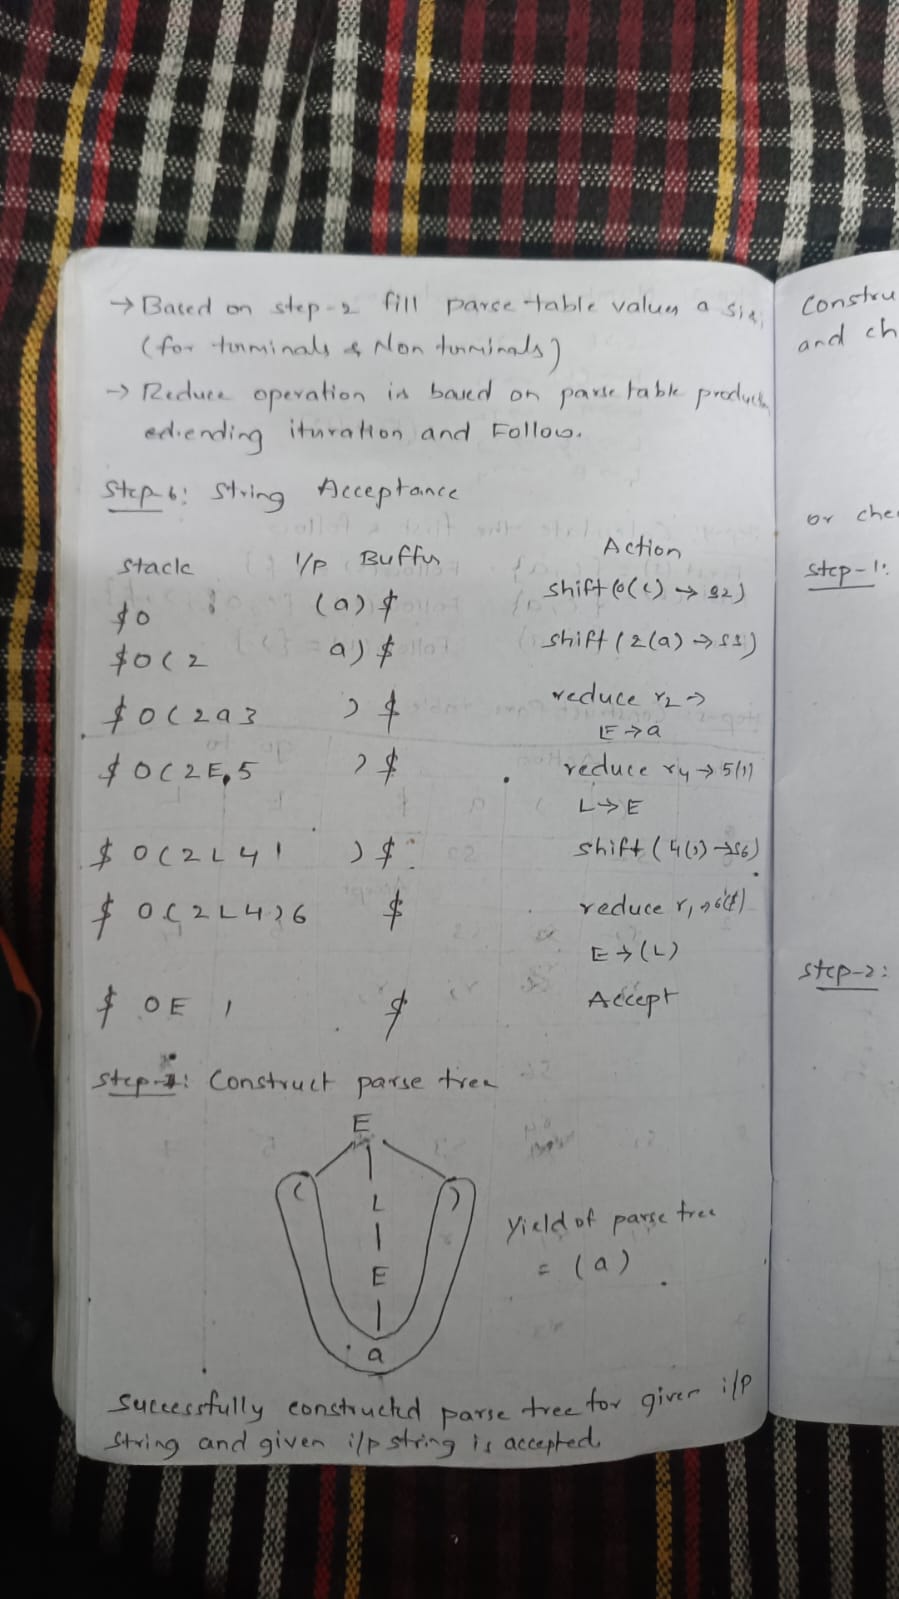 → Based on step-2 fill parse table values a
(for terminals & Non terminals)
→ Reduce operation is based on parse table
ituration and Follow.
Step-6: String Acceptance
Stack I/P Buffer Action
$0 (a)$ shift (0(() → S2)
$0(2 a)$ shift (2(a) → S3)
$0(2a3 )$ reduce r2 →
E→a
$0(2E5 )$ reduce r4 → 5())
L→E
$0(2L4 )$ shift (4()) → S6)
$0(2L4)6 $ reduce r1 → 6($)
E→(L)
$0E1 $ Accept
Step-: Construct parse tree
E
( L )
E
a
Yield of parse tree
= (a)
Successfully constructed parse tree for given i/p
string and given i/p string is accepted.
Constru
and ch
or che
Step-1:
Step-2: